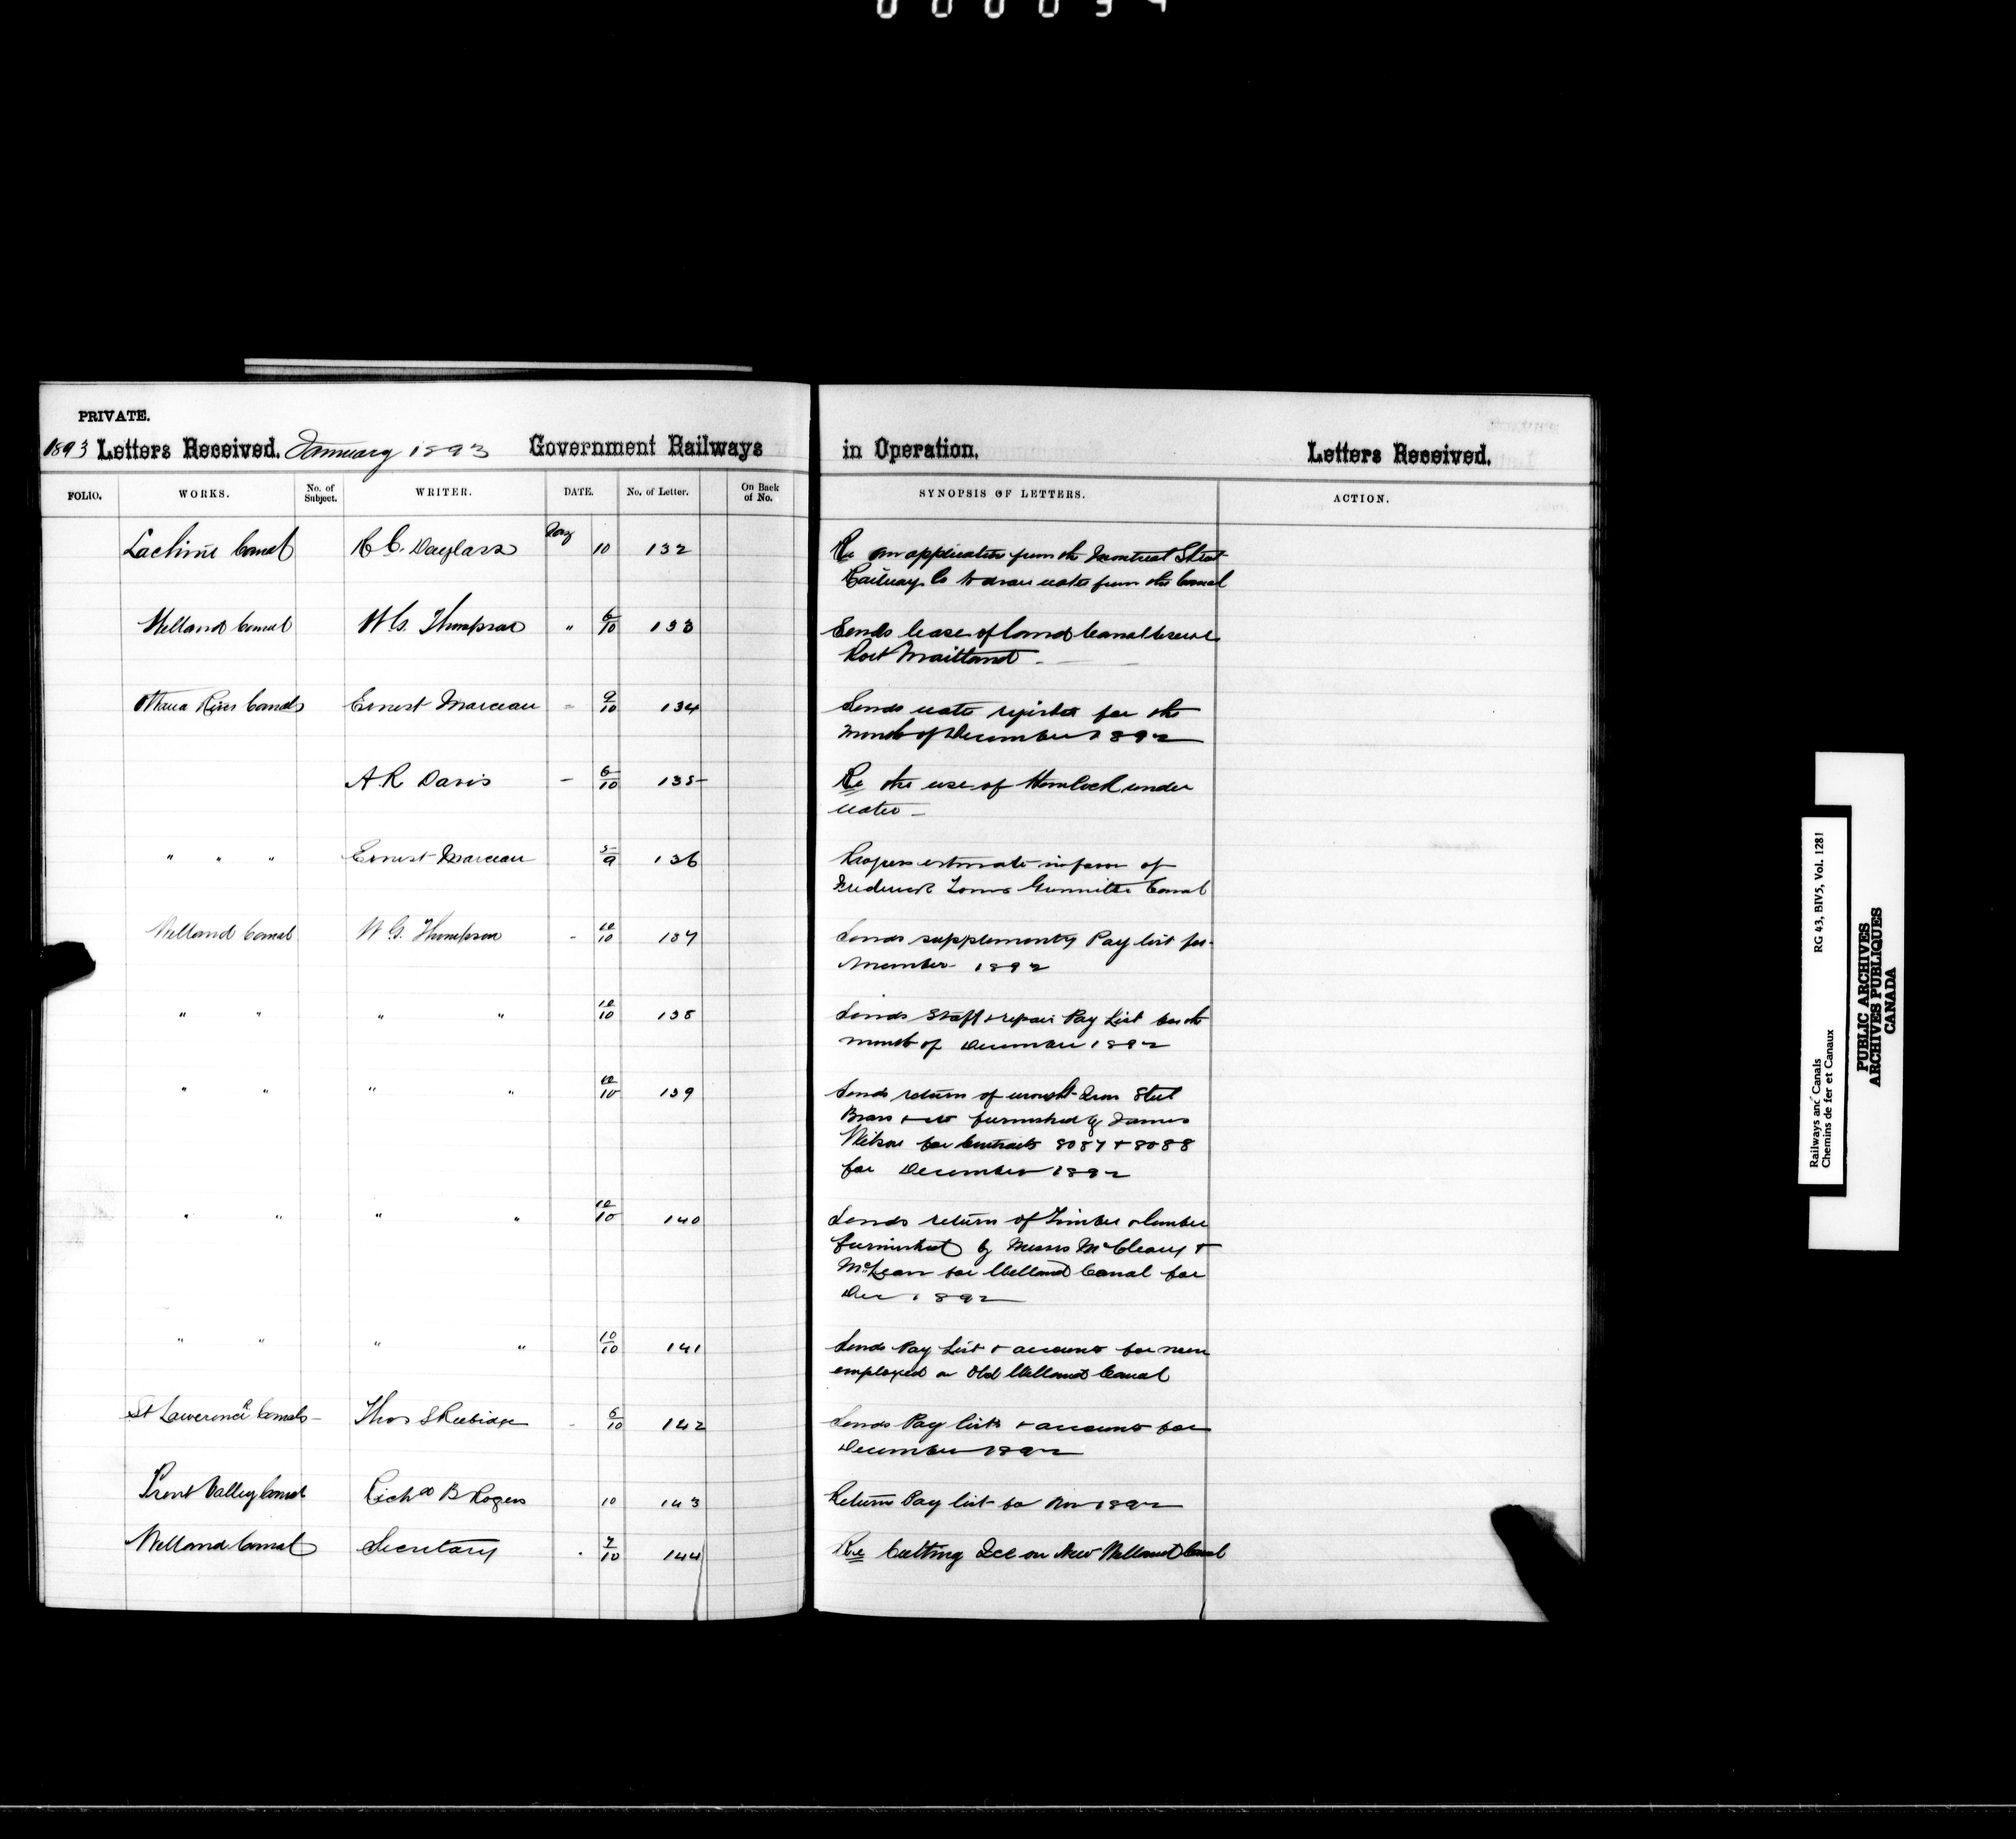 PRIVATE.
1893 Letters Received. January 1893 Government Railways in Operation. Letters Received.
FOLIO. WORKS. No. of Subject. WRITER. DATE. No. of Letter. On Back of No. SYNOPSIS OF LETTERS. ACTION.
Lachine Canal R C. Douglass Jany 10 132 Re an application from the Montreal Street
Railway Co to draw water from the Canal
Welland Canal W G. Thompson " 6/10 133 Sends lease of land Canal Reserve
Port Maitland
Ottawa River Canals Ernest Marceau " 9/10 134 Sends water register for the
month of December 1892
A R Davis - 6/10 135 Re the use of Hemlock under
water -
" " " Ernest Marceau 5/9 136 Progress estimate in favor of
Frederick Toms Grenville Canal
Welland Canal W G. Thompson - 10/10 137 Sends supplementy Pay list for
November 1892
" " " " 10/10 138 Sends Staff & repair Pay List for the
month of December 1892
" " " " 10/10 139 Sends return of wrought Iron Steel
Brass & furnished by James
Wilson for Contracts 8087 & 8088
for December 1892
" " " " 10/10 140 Sends return of Timber & lumber
furnished by Messrs McCleary &
McLean for Welland Canal for
Dec 1892
" " " " 10/10 141 Sends Pay List & accounts for men
employed on Old Welland Canal
St Lawerence Canals - Thos S Rubidge - 6/10 142 Sends Pay lists & accounts for
December 1892
Trent Valley Canal Richd B Rogers 10 143 Returns Pay list for Nov 1892
Welland Canal Secretary . 7/10 144 Re Cutting Ice on New Welland Canal
Railways and Canals RG 43, BIV5, Vol. 1281
Chemins de fer et Canaux
PUBLIC ARCHIVES
ARCHIVES PUBLIQUES
CANADA